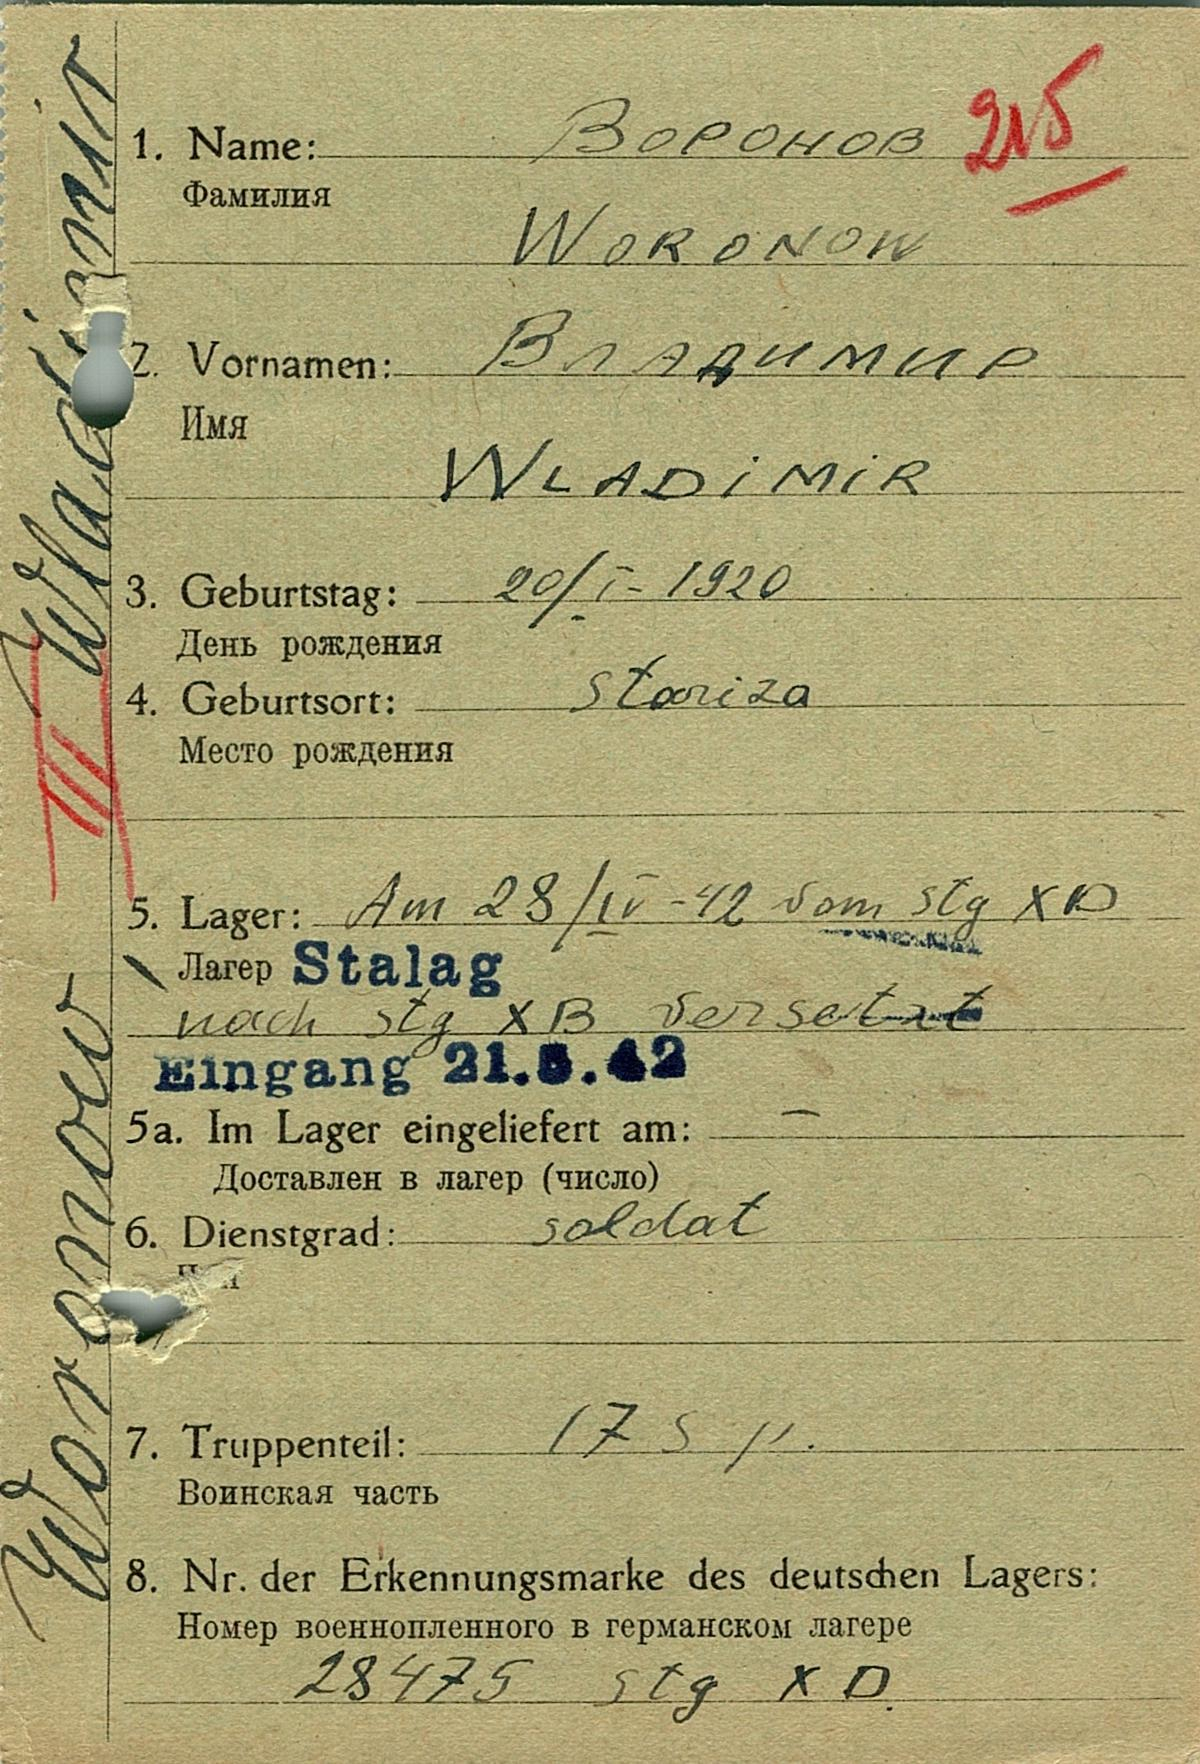 215
1. Name: Воронов
Фамилия
Woronow
2. Vornamen: Владимир
Имя
Wladimir
3. Geburtstag: 20/I-1920
День рождения
4. Geburtsort: Stariza
Место рождения
5. Lager: Am 28/IV-42 vom Stg XD
Лагер Stalag
nach Stg XB versetzt
Eingang 21.5.42
5a. Im Lager eingeliefert am: –
Доставлен в лагер (число)
6. Dienstgrad: Soldat
7. Truppenteil: 17 S p.
Воинская часть
8. Nr. der Erkennungsmarke des deutschen Lagers:
Номер военнопленного в германском лагере
28475 Stg XD.
Woronow, Wladimir
III